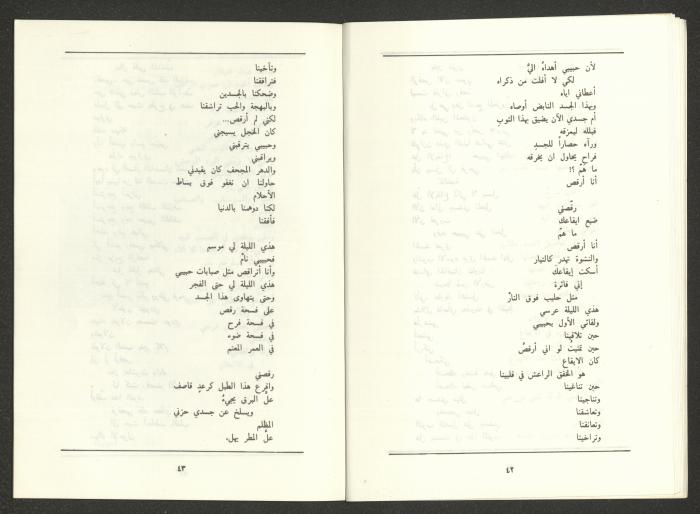 لأن حبيبي أهداهُ اليَّ
لكي لا أفلت من ذكراه
أعطاني اياه
وبهذا الجسد النابض أوصاه
أم جسدي الآن يضيق بهذا الثوبِ
فبلله ليمزقهِ
ورآه حصاراً للجسدِ
فراح يحاول ان يخرقه
ما هَمَّ ؟!
أنا أرقص
رقّصني
ضيع ايقاعك
ما همَّ
أنا أرقص
والنشوة تهدر كالتيار
أسكت إيقاعَك
إني فائرة
مثل حليب فوق النارْ
هذي الليلة عرسي
ولقائي الأول بحبيبي
حين تلاقينا
حين تمنيتُ لو اني أرقصُ
كان الايقاع
هو الخفق الراعش في قلبينا
حين تناغينا
وتناجينا
وتعاشقنا
وتعانقنا
وتراخينا
٤٢
وتآخينا
فترافقنا
وضحكنا بالجسدين
وبالبهجة والحب تراشقنا
لكني لم أرقص...
كان الخجل يسيجني
وحبيبي يترقبني
ويراقبني
والدهر المجحف كان يقيدني
حاولنا ان نغفو فوق بساط
الأحلام
لكنا دوهمنا بالدنيا
فأفقنا
هذي الليلة لي موسم
فحبيبي نائمْ
وأنا أتراقص مثل صبابات حبيبي
هذي الليلة لي حتى الفجر
وحتى يتهاوى هذا الجسد
على فسحة رقص
في فسحة فرح
في فسحة ضوء
في العمر المعتم
رقصني
واقرع هذا الطبل كرعدٍ قاصف
علَّ البرق يجيءُ
ويسلخ عن جسدي حزني
المظلم
علَّ المطر يهل،
٤٣